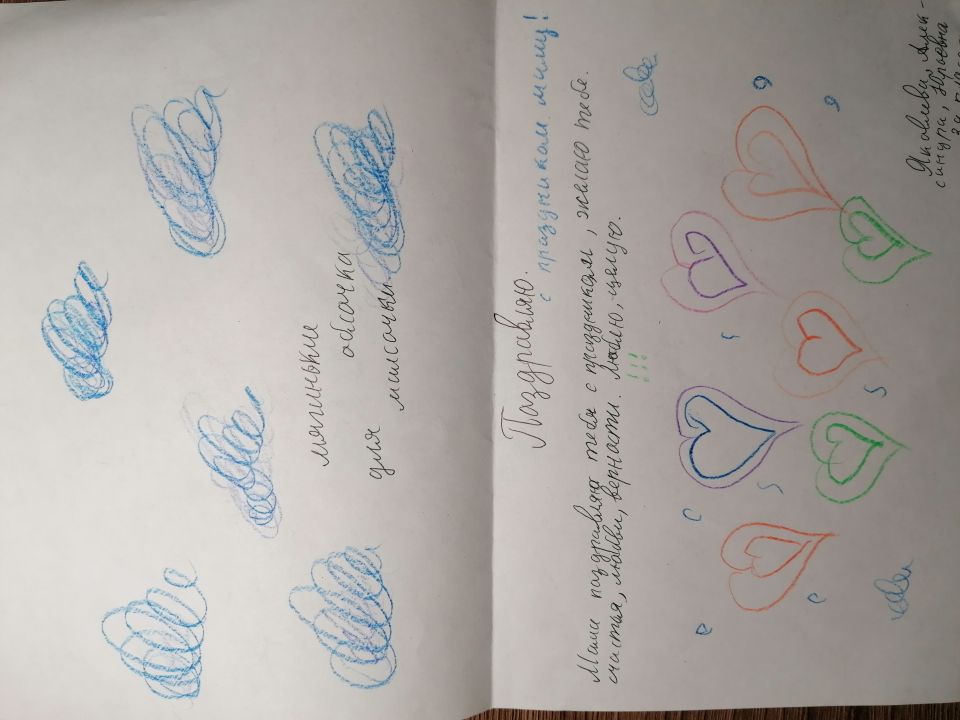 мягиньки
облочка
для
мамочки
Паздравляю.
с праздником маму!
Мама паздравляю тебя с праздником, жилаю тебе.
счастья, любви, вернасти. Люблю, цялую.
!!!
Яковлева, Алек-
сандра, Юрьевна